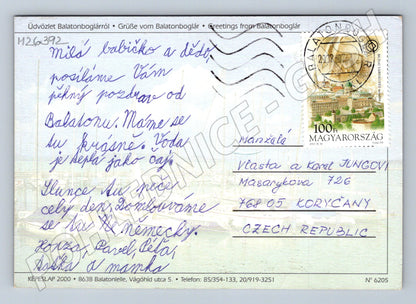 Üdvözlet Balatonboglárról • Grüße vom Balatonboglár • Greetings from Balatonboglár
M26392
Milá babičko a dědo,
posíláme Vám
pěkný pozdrav od
Balatonu. Máme se
tu krásně. Voda
je teplá jako čaj.
Slunce tu peče
celý den. Domlouváme
se tu německy.
Honza, Pavel, Péťa,
a mamka
BALATONBOGLÁR
100Ft
MAGYARORSZÁG
Manželé
Vlasta a Karel JUNGOVI
Masarykova 726
768 05 KORYČANY
CZECH REPUBLIC
KÉPESLAP 2000 • 8638 Balatonlelle, Vágóhíd utca 5. • Telefon: 85/354-133, 20/919-3251
N° 6205